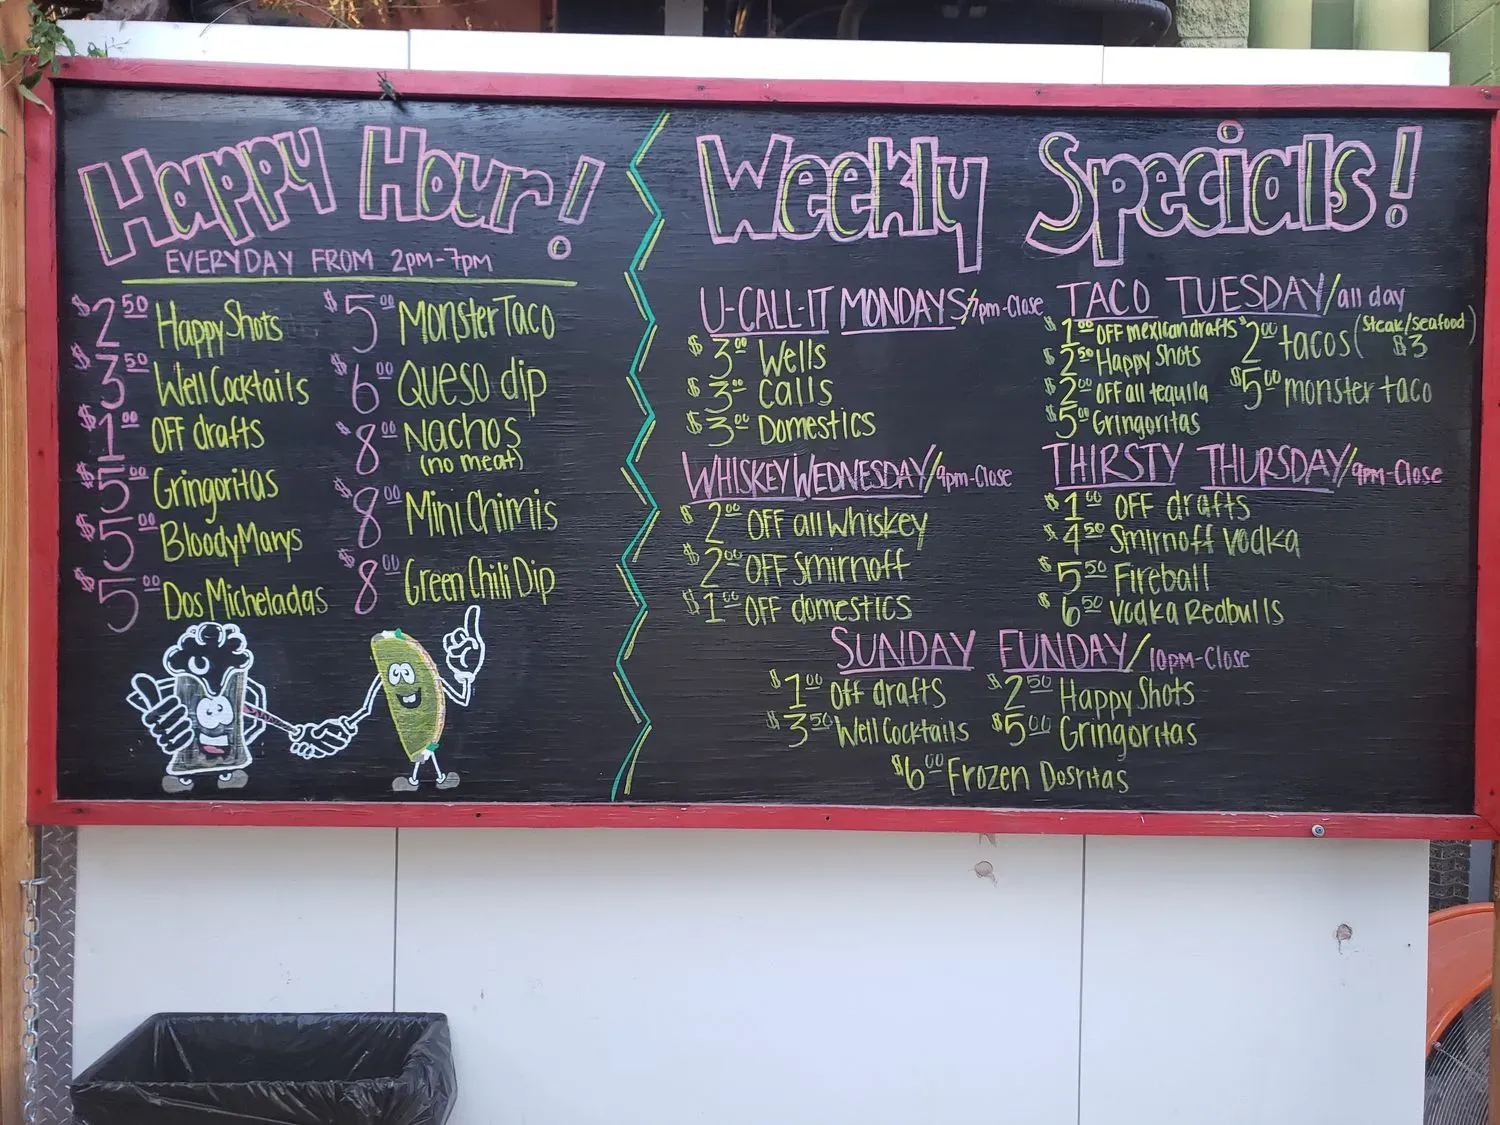 Happy Hour!
EVERYDAY FROM 2PM-7PM
$2.50 Happy Shots
$3.50 Well Cocktails
$1.00 OFF drafts
$5.00 Gringoritas
$5.00 Bloody Marys
$5.00 Dos Micheladas
$5.00 Monster Taco
$6.00 Queso dip
$8.00 Nachos
(no meat)
$8.00 Mini Chimis
$8.00 Green Chili Dip
Weekly Specials!
U-CALL-IT MONDAYS/7pm-Close
$3.00 Wells
$3.00 Calls
$3.00 Domestics
WHISKEY WEDNESDAY/9pm-Close
$2.00 OFF all Whiskey
$2.00 OFF Smirnoff
$1.00 OFF domestics
TACO TUESDAY/all day
$1.00 OFF mexican drafts
$2.50 Happy Shots
$2.00 OFF all tequila
$5.00 Gringoritas
$2.00 tacos (Steak/Seafood $3)
$5.00 monster taco
THIRSTY THURSDAY/9pm-Close
$1.00 OFF drafts
$4.50 Smirnoff Vodka
$5.50 Fireball
$6.50 Vodka Redbulls
SUNDAY FUNDAY/10pm-Close
$1.00 Off drafts
$3.50 Well Cocktails
$2.50 Happy Shots
$5.00 Gringoritas
$6.00 Frozen Dosritas